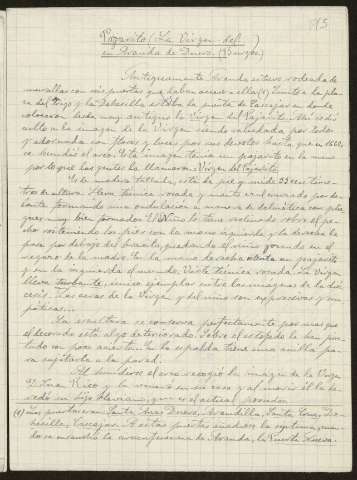 113
Pajarito (La Virgen del )
en Aranda de Duero. (Burgos)
Antiguamente Aranda estuvo rodeada de
murallas con seis puertas que daban acceso a ella (1) Junto a la pla-
za del Trigo y la Dehesilla estaba la puerta de Cascajar en donde
colocaron desde muy antiguo la Virgen del Pajarito. Allí reci-
bió culto la imagen de la Virgen siendo saludada por todos
y adornada con flores y luces por sus devotos hasta que en
se hundió el arco. Esta imagen tenía un pajarito en la mano
por lo que las gentes la llamaron "Virgen del Pajarito".
Es de madera está de pie y mide 53 cms
de altura. Lleva túnica rosada y manto
formando una ondulación a manera de delantera con plie-
gues muy bien formados. El Niño lo tiene reclinado sobre el pe-
cho sosteniendo los pies con la mano izquierda y la derecha la
pasa por debajo del bracito, quedando el niño en el
regazo de la madre. En la mano derecha ostenta un pajarito
y en la izquierda el mundo. Viste túnica rosada. La Virgen
lleva turbante, único ejemplar entre las imágenes de la dió-
cesis. Las caras de la Virgen y del niño son expresivas y sim-
páticas.
La escultura se conserva perfectamente por más que
el decorado está algo deteriorado. Sobre el estofado la han pin-
tado con poco acierto. En la espalda tiene una anilla pa-
ra sujetarla a la pared.
Al hundirse el arco recogió la imagen de la Virgen
D. Juan Rico y la veneró en su casa y al morir él la he-
redó su hijo Flaviano, que es el actual poseedor.
(1) Las puertas eran: Santa Ana, Duero, Arandilla, Santa Cruz, De-
hesilla, Cascajar. A estas puertas añadieron la séptima, cuan-
do se ensanchó la circunferencia de Aranda, la Puerta Nueva.